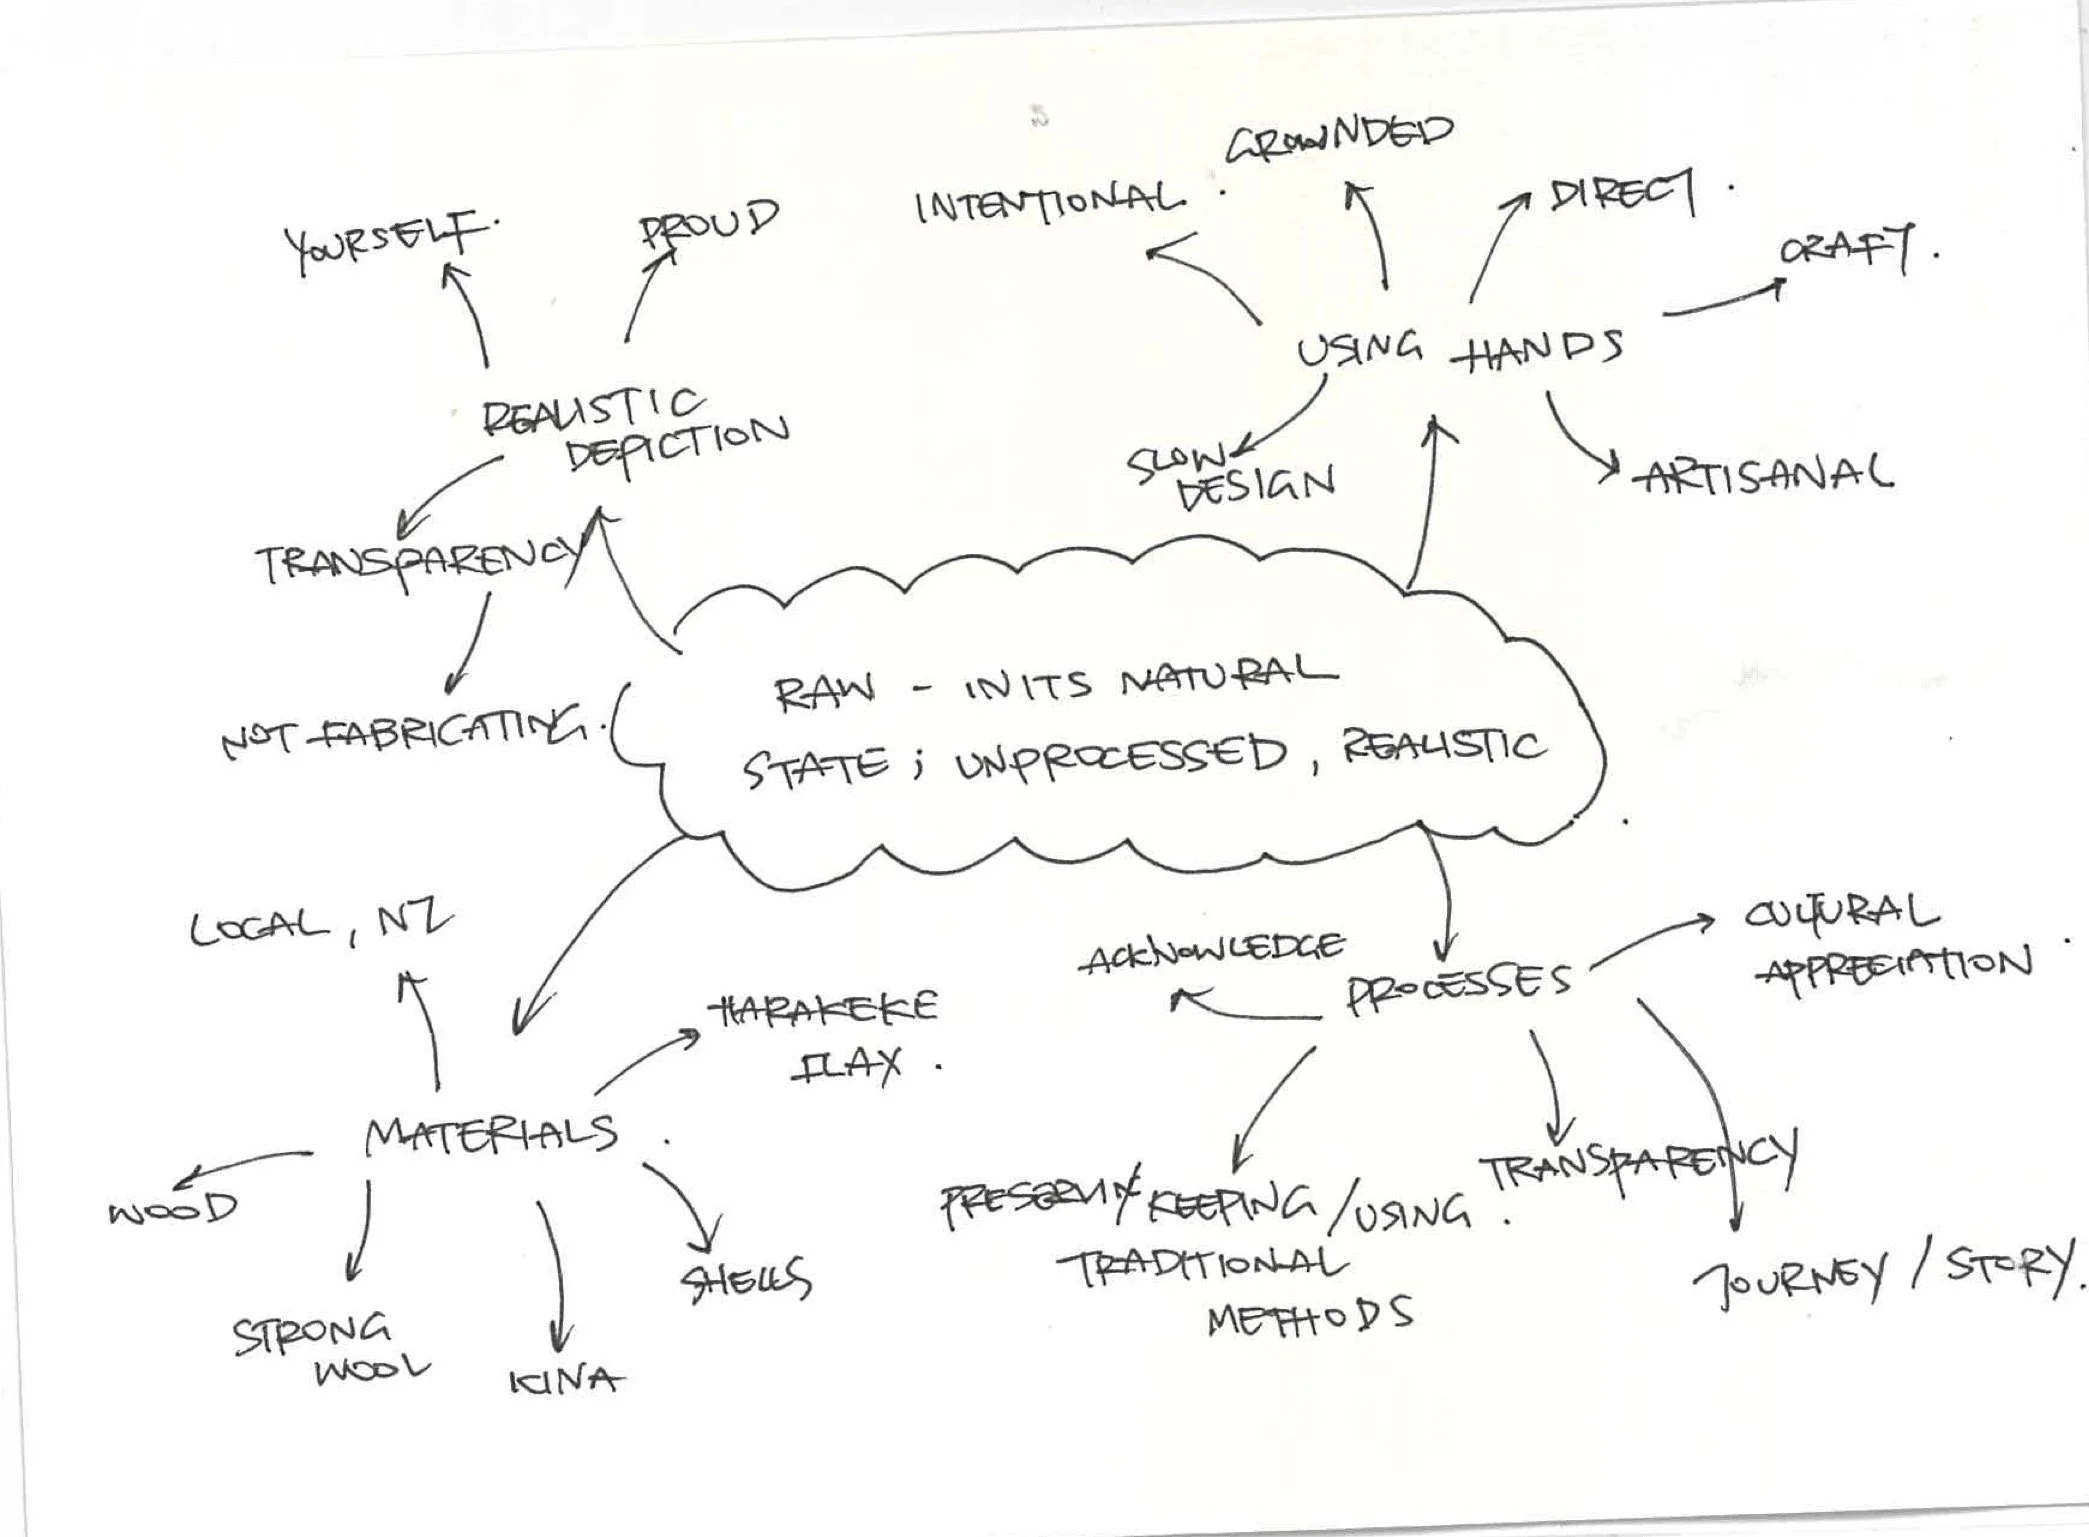 GROWNDED
INTENTIONAL.
DIRECT.
YOURSELF.
PROUD
CRAFT.
USING HANDS
REALISTIC
DEPICTION
SLOW
DESIGN
ARTISANAL
TRANSPARENCY
RAW - IN ITS NATURAL
STATE ; UNPROCESSED, REALISTIC
NOT FABRICATING.
LOCAL, NZ
ACKNOWLEDGE
CULTURAL
APPRECIATION.
PROCESSES
HARAKEKE
FLAX.
MATERIALS.
WOOD
PRESERVIN/KEEPING/USING.
TRADITIONAL
METHODS
TRANSPARENCY
JOURNEY / STORY.
SHELLS
STRONG
WOOL
KINA